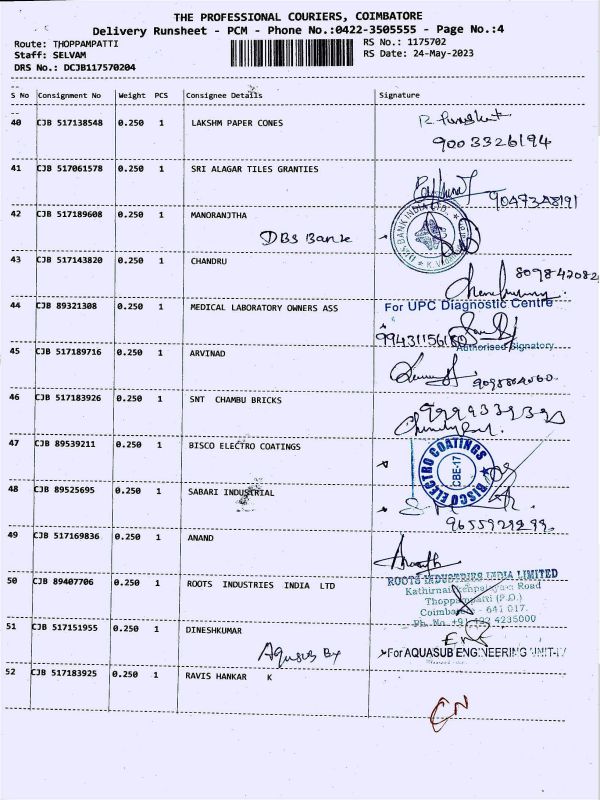 THE PROFESSIONAL COURIERS, COIMBATORE
Delivery Runsheet - PCM - Phone No.:0422-3505555 - Page No.:4
Route: THOPPAMPATTI RS No.: 1175702
Staff: SELVAM RS Date: 24-May-2023
DRS No.: DCJB117570204
S No Consignment No Weight PCS Consignee Details Signature
40 CJB 517138548 0.250 1 LAKSHM PAPER CONES
9003326194
41 CJB 517061578 0.250 1 SRI ALAGAR TILES GRANTIES
9047348191
42 CJB 517189608 0.250 1 MANORANJTHA
DBS Bank
43 CJB 517143820 0.250 1 CHANDRU
809842082
44 CJB 89321308 0.250 1 MEDICAL LABORATORY OWNERS ASS For UPC Diagnostic Centre
Authorised Signatory
45 CJB 517189716 0.250 1 ARVINAD
46 CJB 517183926 0.250 1 SNT CHAMBU BRICKS
47 CJB 89539211 0.250 1 BISCO ELECTRO COATINGS
BISCO ELECTRO COATINGS
CBE-17
48 CJB 89525695 0.250 1 SABARI INDUSTRIAL
49 CJB 517169836 0.250 1 ANAND
50 CJB 89407706 0.250 1 ROOTS INDUSTRIES INDIA LTD
ROOTS INDUSTRIES INDIA LIMITED
Road
Thoppampatti (P.O.)
Coimbatore - 641 017.
Ph. No +91 422 4235000
51 CJB 517151955 0.250 1 DINESHKUMAR
Aquasub
For AQUASUB ENGINEERING UNIT-IV
52 CJB 517183925 0.250 1 RAVIS HANKAR K